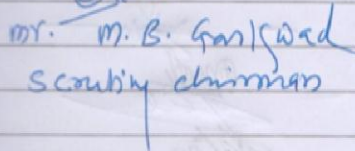 mr. M. B. Gaikwad
Scrutiny chairman